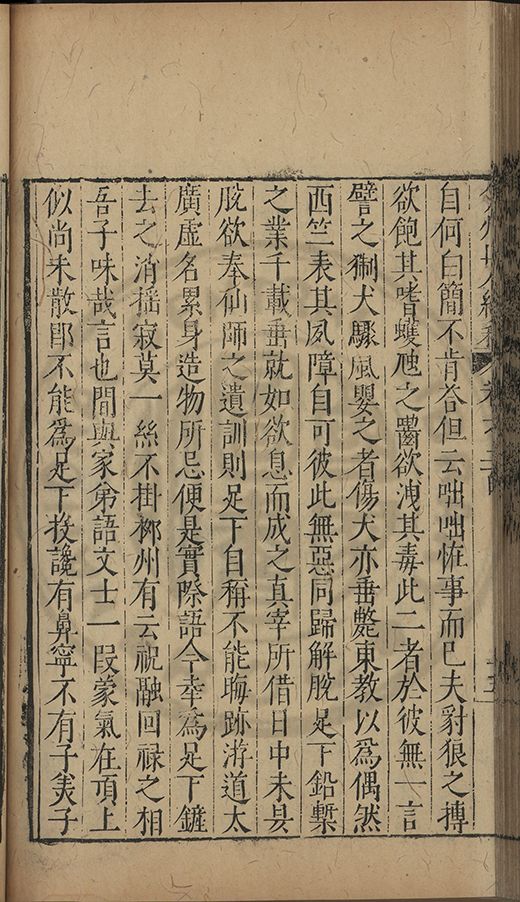 自何白簡不肯荅但云咄咄恠事而已夫豺狼之摶
欲飽其嗜蠖虺之齧欲洩其毒此二者於彼無一言
譬之猘犬驟風嬰之者傷犬亦垂斃東教以爲偶然
西竺表其夙障自可彼此無惡同歸解脫足下鉛槧
之業千載垂就如欲息而成之真宰所借日中未昃
脫欲奉仙師之遺訓則足下自稱不能晦跡游道太
廣虛名累身造物所忌便是實際語今幸爲足下鏟
去之消揺寂莫一絲不掛柳州有云祝融回祿之相
吾子味哉言也間與家弟語文士一叚蒙氣在頂上
似尚未散郎不能爲足下投讒有鼻寧不有子羙子